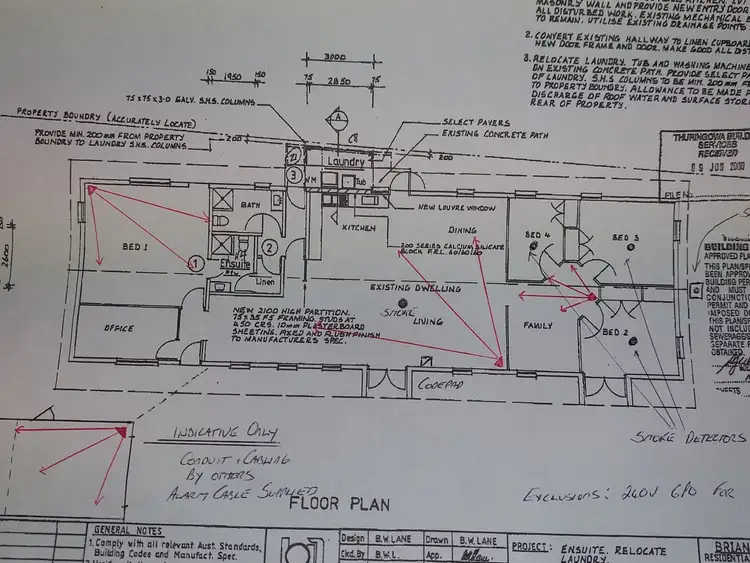 MASONRY WALL AND PROVIDE NEW ENTRY DOOR
ALL DISTURBED WORK. EXISTING MECHANICAL
TO REMAIN. UTILISE EXISTING DRAINAGE POINTS
2. CONVERT EXISTING HALLWAY TO LINEN CUPBOARD
NEW DOOR FRAME AND DOOR. MAKE GOOD ALL
3. RELOCATE LAUNDRY. TUB AND WASHING MACHINE
ON EXISTING CONCRETE PATH. PROVIDE SELECT
OF LAUNDRY. S.H.S COLUMNS TO BE MIN. 200mm
TO PROPERTY BOUNDRY. ALLOWANCE TO BE MADE
DISCHARGE OF ROOF WATER AND SURFACE
REAR OF PROPERTY.
3000
150 1950 150
75 2850 75
75x75x3.0 GALV. S.H.S. COLUMNS
A
C8
SELECT PAVERS
EXISTING CONCRETE PATH
PROPERTY BOUNDRY (ACCURATELY LOCATE)
PROVIDE MIN. 200mm FROM PROPERTY
BOUNDRY TO LAUNDRY S.H.S. COLUMNS
200
200
Laundry
WM
Tub
3
THURINGOWA
SERVICES
RECEIVED
JUN 2000
FILE No.
BATH
NEW LOUVRE WINDOW
KITCHEN
DINING
BED 4
BED 3
200 SERIES CALCIUM SILICATE
BLOCK F.R.L. 60/60/60
BED 1
1
2
Ensuite
Linen
2600
EXISTING DWELLING
SMOKE
LIVING
NEW 2100 HIGH PARTITION.
75x35 F5 FRAMING. STUDS AT
450 CRS. 10mm PLASTERBOARD
SHEETING. FIXED AND FLUSH FINISH
TO MANUFACTURERS SPEC.
OFFICE
FAMILY
BED 2
BUILDING
APPROVED PLAN
THIS PLAN/SP
BEEN APPROV
BUILDING PER
AND MUST
CONJUNCTI
PERMIT AND
IMPOSED O
THIS PLAN
NOT INCLU
SEWERAGE
SEPARATE
OBTAINED
CODEPAD
SMOKE DETECTORS
INDICATIVE ONLY
CONDUIT + CABLING
BY OTHERS
ALARM CABLE SUPPLIED
FLOOR PLAN
EXCLUSIONS: 240V GPO FOR
GENERAL NOTES
1. Comply with all relevant Aust. Standards,
Building Codes and Manufact. Spec.
Design B.W.LANE Drawn B.W.LANE
Ckd. By B.W.L. App.
PROJECT: ENSUITE. RELOCATE
LAUNDRY.
BRIAN
RESIDENTIAL